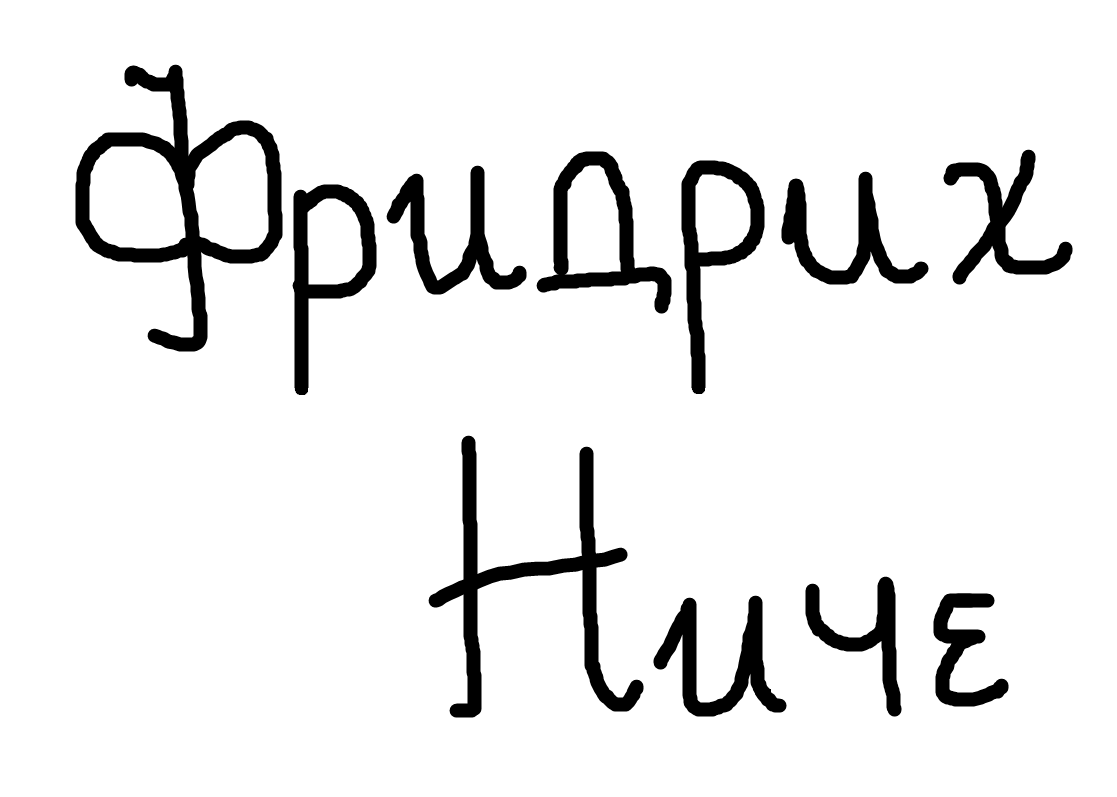 Фридрих
Ниче